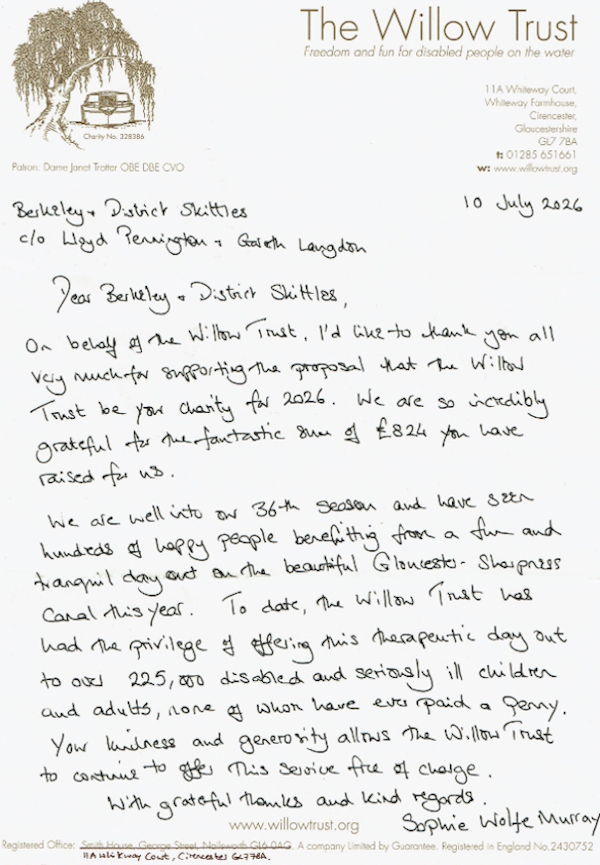 The Willow Trust
Freedom and fun for disabled people on the water
11A Whiteway Court,
Whiteway Farmhouse,
Cirencester,
Gloucestershire
GL7 7BA
t: 01285 651661
w: www.willowtrust.org
Charity No. 328386
Patron: Dame Janet Trotter OBE DBE CVO
10 July 2026
Berkeley + District Skittles
c/o Lloyd Pennington + Gareth Langdon
Dear Berkeley + District Skittles,
On behalf of the Willow Trust, I'd like to thank you all
very much for supporting the proposal that the Willow
Trust be your charity for 2026. We are so incredibly
grateful for the fantastic sum of £824 you have
raised for us.
We are well into our 36th season and have seen
hundreds of happy people benefitting from a fun and
tranquil day out on the beautiful Gloucester-Sharpness
Canal this year. To date, the Willow Trust has
had the privilege of offering this therapeutic day out
to over 225,000 disabled and seriously ill children
and adults, none of whom have ever paid a penny.
Your kindness and generosity allows the Willow Trust
to continue to offer this service free of charge.
With grateful thanks and kind regards.
Sophie Wolfe Murray
www.willowtrust.org
Registered Office: Smith House, George Street, Nailsworth GL6 0AG. A company Limited by Guarantee. Registered in England No.2430752
11A Whiteway Court, Cirencester GL77BA.